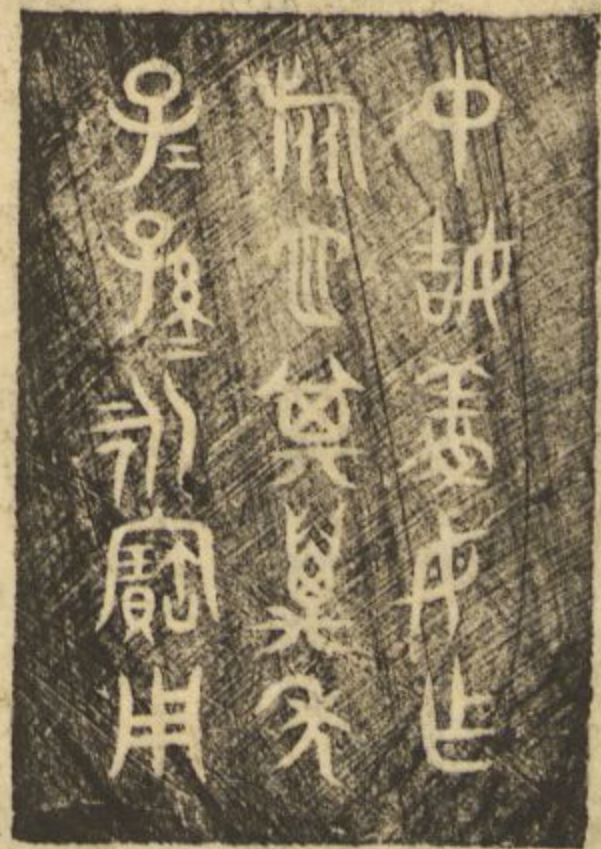 中姞義母乍
旅也其萬年
子〻孫〻永寶用